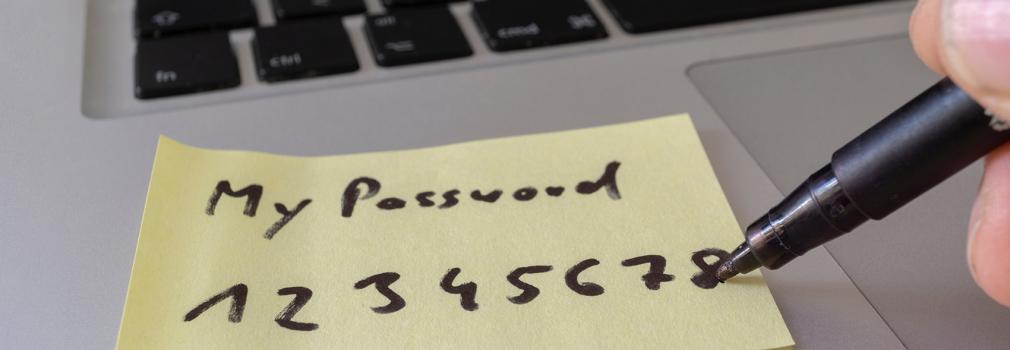 fn ctrl alt cmd ⌘
My Password
1 2 3 4 5 6 7 8